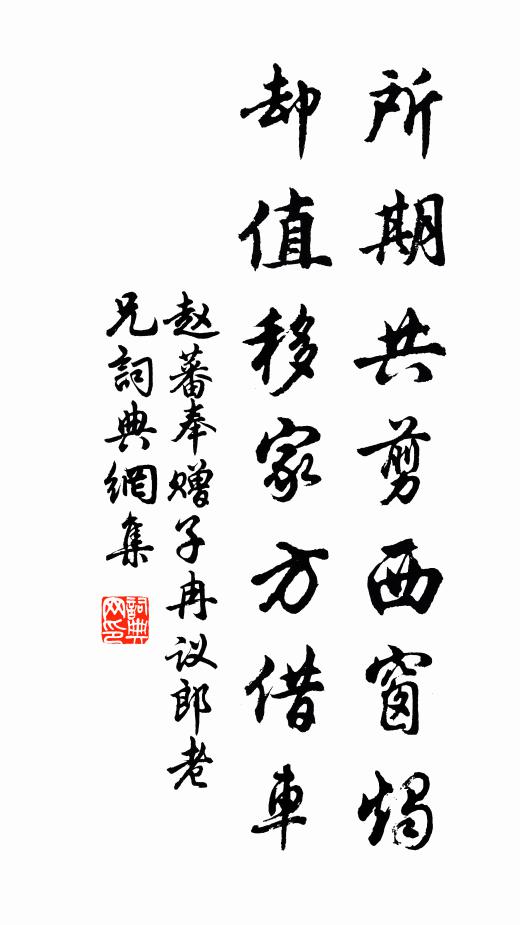 所期共剪西窗燭
却值移家方借車
赵蕃奉赠子冉议郎老
兄詞典網集
詞典
网印